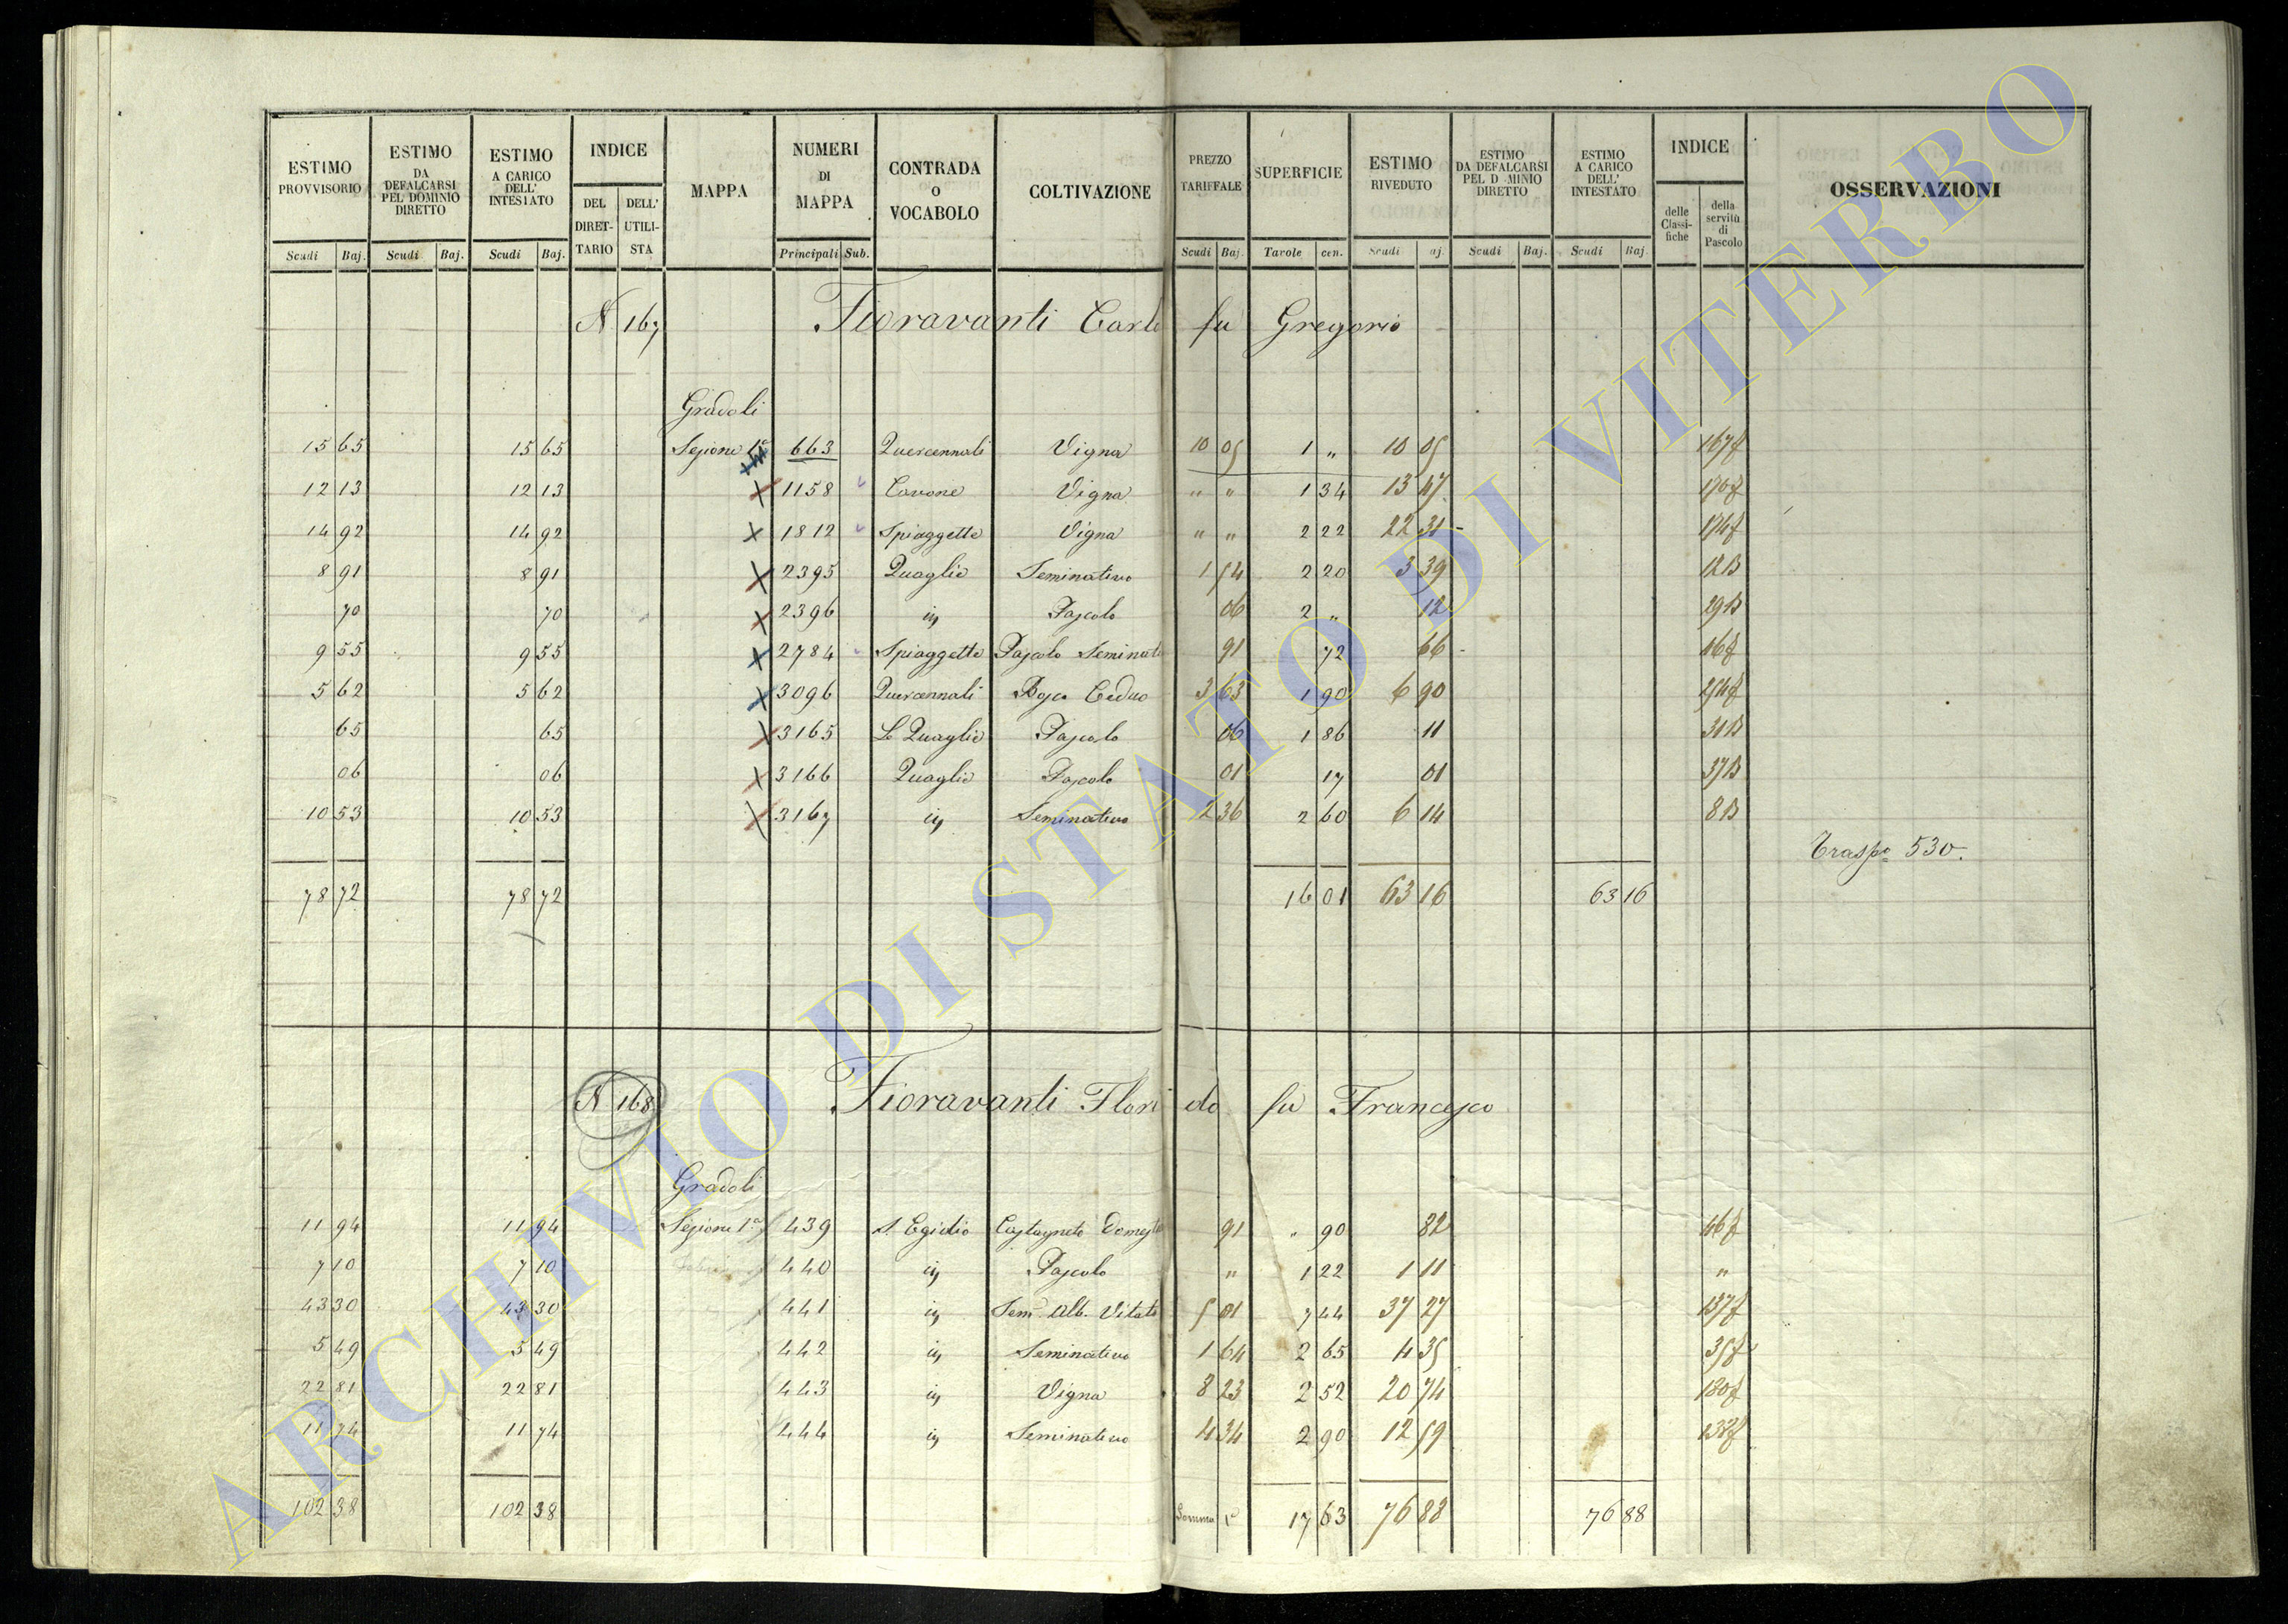 ESTIMO PROVVISORIO Scudi Baj.
ESTIMO DA DEFALCARSI PEL DOMINIO DIRETTO Scudi Baj.
ESTIMO A CARICO DELL' INTESTATO Scudi Baj.
INDICE DEL DIRET-TARIO DELL' UTILI-STA
MAPPA
NUMERI DI MAPPA Principali Sub.
CONTRADA O VOCABOLO
COLTIVAZIONE
PREZZO TARIFFALE Scudi Baj.
SUPERFICIE Tavole cen.
ESTIMO RIVEDUTO Scudi aj.
ESTIMO DA DEFALCARSI PEL D MINIO DIRETTO Scudi Baj.
ESTIMO A CARICO DELL' INTESTATO Scudi Baj.
INDICE delle Classi-fiche della servitù di Pascolo
OSSERVAZIONI
N 167 Fioravanti Carlo fu Gregorio
Gradoli
15 65 15 65 Sezione 1ª 663 Quercennali Vigna 10 05 1 " 10 05 167f
12 13 12 13 1158 Cavone Vigna " " 1 34 13 47 170f
14 92 14 92 1812 Spiaggette Vigna " " 2 22 22 31 174f
8 91 8 91 2395 Quaglie Seminativo 1 54 2 20 3 39 12B
70 70 2396 in Pascolo 06 2 " 12 29B
9 55 9 55 2784 Spiaggette Pascolo Seminato 91 72 66 16f
5 62 5 62 3096 Quercennali Bosco Ceduo 3 63 1 90 6 90
65 65 3165 Le Quaglie Pascolo 06 1 86 11 31B
06 06 3166 Quaglie Pascolo 01 17 01 37B
10 53 10 53 3167 in Seminativo 2 36 2 60 6 14 8B
Traspo 530.
78 72 78 72 16 01 63 16 63 16
N 168 Fioravanti Florido fu Francesco
Gradoli
11 94 11 94 Sezione 1ª 439 S. Egidio Castagneto Domest 91 " 90 82 46f
7 10 7 10 440 in Pascolo " 1 22 1 11 "
43 30 43 30 441 in Sem. Alb. Vitato 5 01 7 44 37 27 137f
5 49 5 49 442 in Seminativo 1 64 2 65 4 35 35f
22 81 22 81 443 in Vigna 8 23 2 52 20 74 180f
11 74 11 74 444 in Seminativo 4 34 2 90 12 59 138f
102 38 102 38 Somma 17 63 76 88 76 88
ARCHIVIO DI STATO DI VITERBO